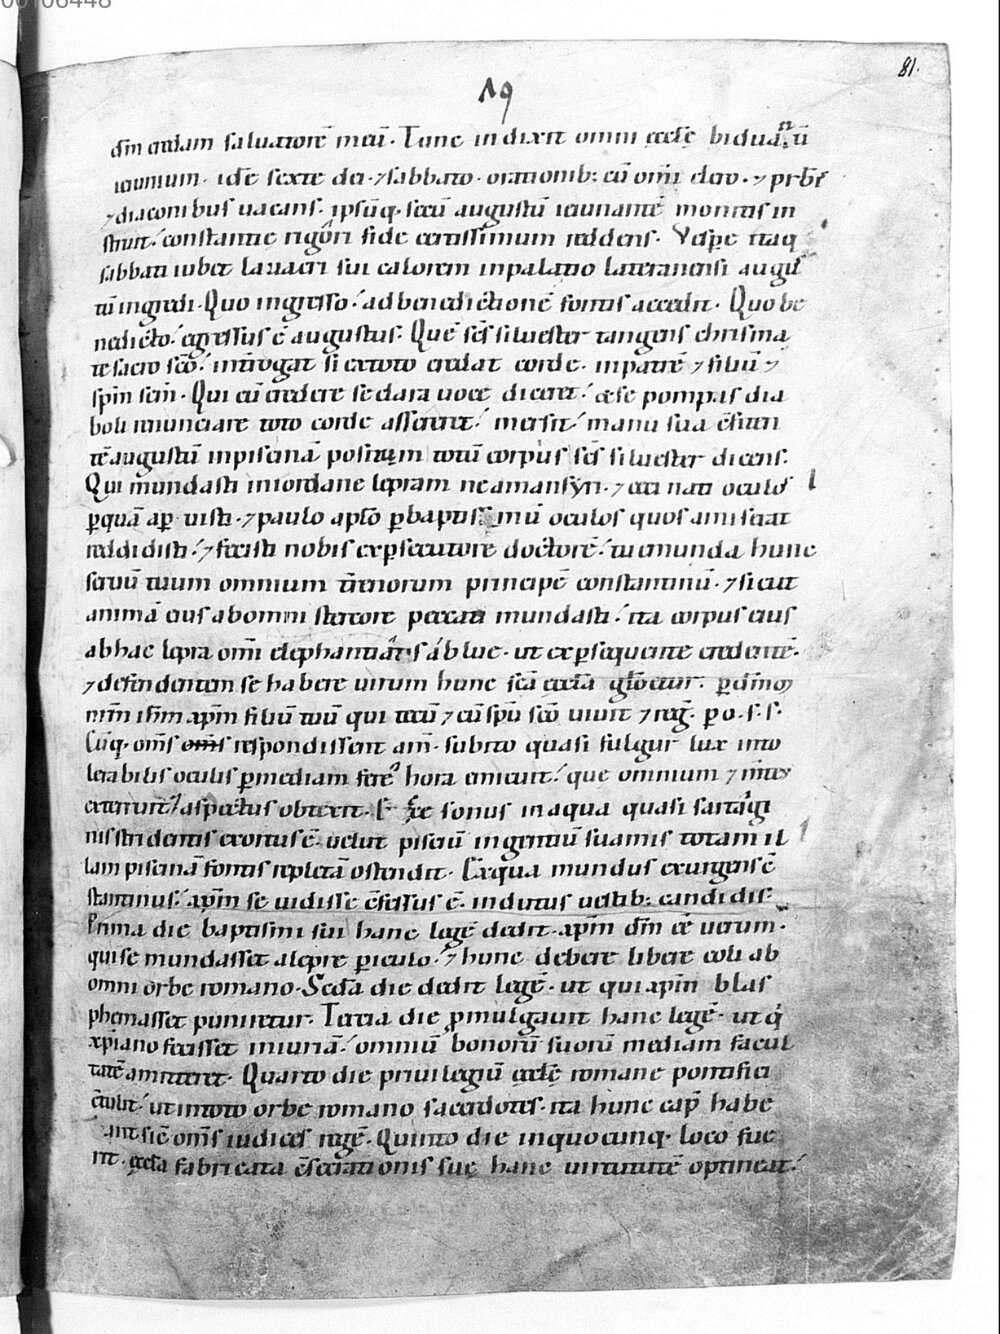 00106448
81.
19
dm̄ credam saluatorē meū. Tunc indixit omni ęcclę biduanū
ieiunium. idē sexte dei. ⁊ sabbato. orationib: cū omi clero. ⁊ prb̄r
⁊ diaconibus uacans. ipsūq. secū augustū ieiunantē monitis in
struit. constantie rigori fide certissimum reddens. Vespe itaq
sabbati iubet lauacri sui calorem inpalatio lateranensi augus
tū ingredi. Quo ingresso. ad benedictionē fontis accedit. Quo be
nedicto. egressus ē augustus. Quē sc̄s siluester tangens chrisma
te sacro sc̄o. introgat si extoto credat corde. inpatrē ⁊ filiū ⁊
sp̄m sc̄m. Qui cū credere se clara uoce diceret. ⁊ se pompis dia
boli renunciare toto corde assereret. mersit manu sua c̄fiten
tē augustū inpiscinā positum totū corpus sc̄s siluester dicens.
Qui mundasti iniordane lepram neamansyri. ⁊ ceci nati oculos
p̄quā ap̄ uisti. ⁊ paulo ap̄lo p̄ baptismū oculos quos amiserat
reddidisti. ⁊ fecisti nobis exp̄secutore doctorē. tu emunda hunc
seruū tuum omnium t̄renorum principē constantinū. ⁊ sicut
animā eius abomni stercore peccati mundasti. ita corpus eius
abhac lepra omī elephantiatis ablue. ut exp̄sequente credentē.
⁊ defendentem se habere uirum hunc sc̄a ęccl̄a gl̄oetur. p̄ dn̄m
nr̄m ih̄m xp̄m filiū tuū qui tecū ⁊ cū sp̄u sc̄o uiuit ⁊ reg̅. p̄ o. s. s.
Cūq. om̄s om̄s respondissent am̄. subito quasi fulgur lux into
lerabilis oculis p̄ mediam fere hora emicuit. que omnium ⁊ m̄tes
exterruit ⁊ aspectus obtexit. Et ecce sonus inaqua quasi sartagi
nis stridentis exortus ē. uelut pisciū ingentiū suamis totam il
lam piscinā fontis repletā ostendit. Ex qua mundus exurgens c̄
stantinus. xp̄m se uidisse c̄fessus ē. indutus uestib: candidis.
Prima die baptismi sui hanc legē dedit. xp̄m dm̄ c̄e uerum.
qui se mundasset alepre p̄iculo. ⁊ hunc debere libere coli ab
omni orbe romano. Secda die dedit legē. ut qui xp̄m blas
phemasset puniretur. Tertia die p̄mulgauit hanc legē. ut q̄
xp̄iano fecisset iniuriā. omniū bonorū suorū mediam facul
tatē amitteret. Quarto die priuilegiū ęcclę romane pontifici
c̄tulit. ut intoto orbe romano sacerdotes. ita hunc cap̄ habe
ant sic om̄s iudices regē. Quinto die inquocunq. loco fue
rit. ęccla fabricata c̄secrationis suę hanc uirtutē optineat.